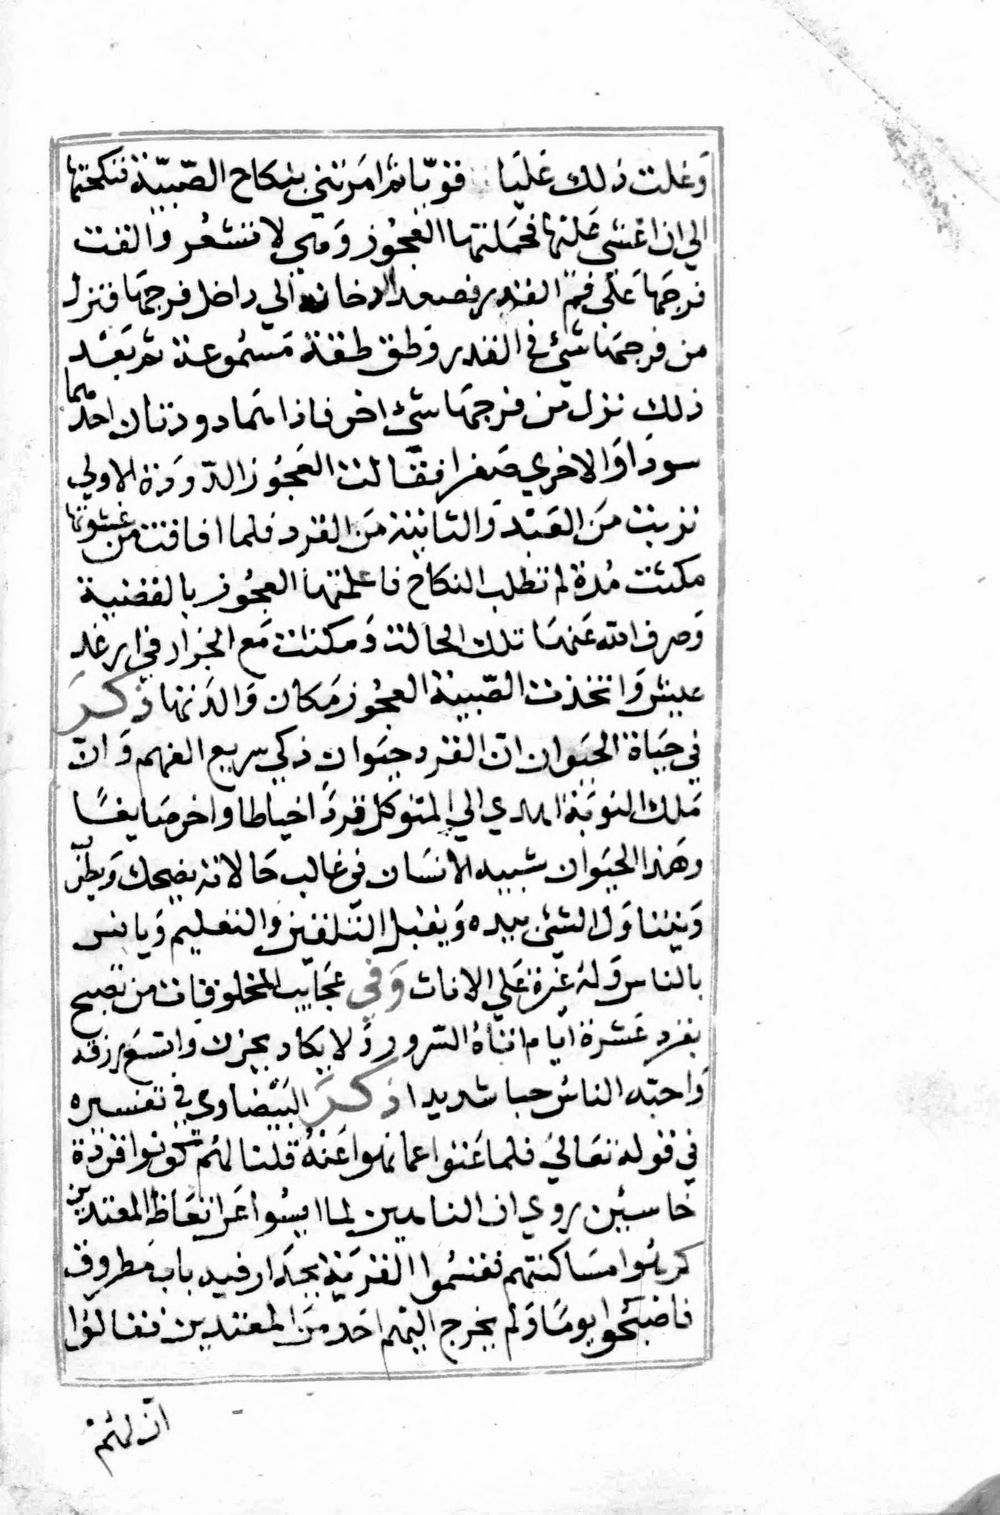 وَغلت ذلك غَليَا قوّيا ثم امَرتني بنكاح الصّبيّة فنكحتها
الي ان اغشي عَليها فحمَلتها العَجُوز وَهي لا تشعُر والقت
فرجهَا عَلى فم القدر فصعد الدخان الي داخل فرجهَا فنزل
من فرجهَا شئ في القدر وَطق طقة مَسْموعة ثم بَعْد
ذلك نزل من فرجهَا شئ اخر فاذا هما دودتان احدهما
سودَا وَالاخري صَفرا فقالت العَجُوز الدّودَة الاولي
تربت مَن العَبْد وَالثانية مَن القرد فلما افاقت من غشوتها
مكثت مُدة لم تطلب النكاح فاعلمتها العجُوز بالقضية
وَصرف الله عَنهَا تلك الحالة وَمكثت مَع الجزار في ارغد
عيش وَاتخذت الصّبية العجُوز مَكان وَالدَتها ذكرَ
في حيَاة الحيَوان انّ القرد حيَوان ذكي سريع الفهم وَانّ
مَلك النوبَة اهدي الي المتوكل قردًا خياطا واخر صَايغًا
وهَذا الحيَوان شبيه الانسَان في غالب حَالاته يضحك وَيطرَب
وَيتناوَل الشئ بيده وَيقبل التّلقين وَالتعليم وَيانس
بالناس وَلهُ غَيرة عَلي الاناث وَفي عَجايب المخلوقات من تصبح
بقرد عَشرة ايام اتاهُ السّرور وَلا يكاد يحزن واتسَع رزقه
وَاحبّه الناس حبا شديدا ذكرَ البَيْضاوي في تفسيره
في قوله تعَالي فلما عَتوا عما نهوا عَنهُ قلنا لهم كونوا قردَة
خاسئين روي ان الناهين لما ايسُوا عَن اتعَاظ المعتدين
كرهُوا مسَاكنتهم فقسمُوا القريَة بجدَار فيه باب مَطروق
فاصْبَحُوا يومًا وَلم يخرج اليهم احَد منَ المعتدين فقالوا
انّ لهم